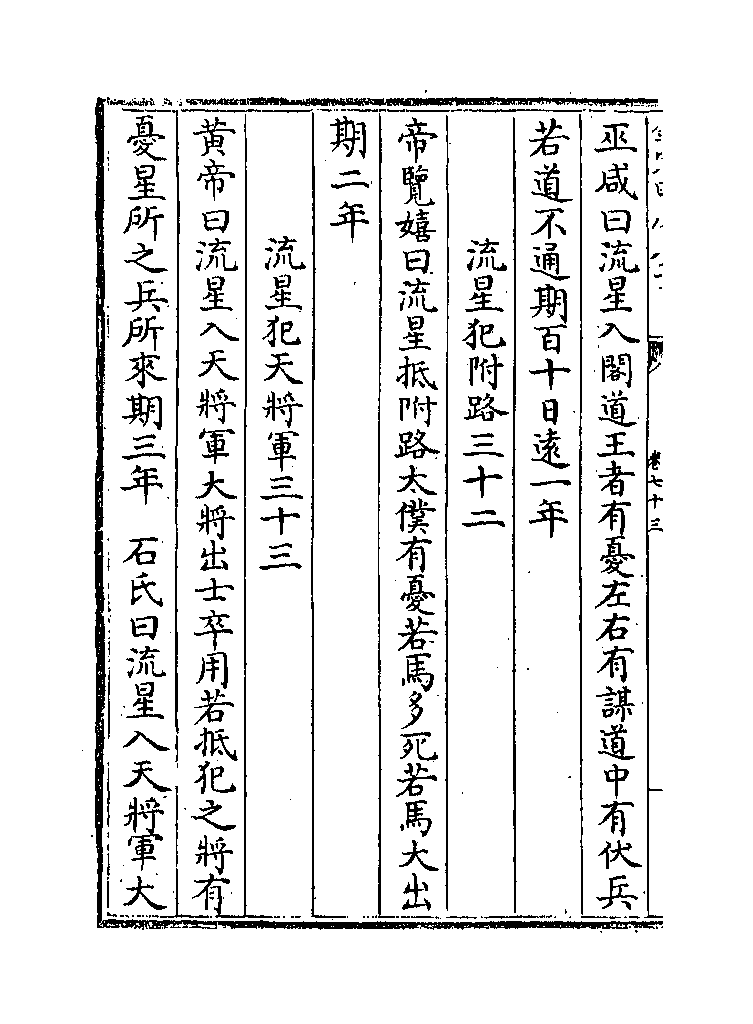 卷七十三
巫咸曰流星入閣道王者有憂左右有謀道中有伏兵
若道不通期百十日遠一年
流星犯附路三十二
帝覽嬉曰流星抵附路太僕有憂若馬多死若馬大出
期二年
流星犯天將軍三十三
黄帝曰流星入天將軍大將出士卒用若抵犯之將有
憂星所之兵所來期三年　石氏曰流星入天將軍大